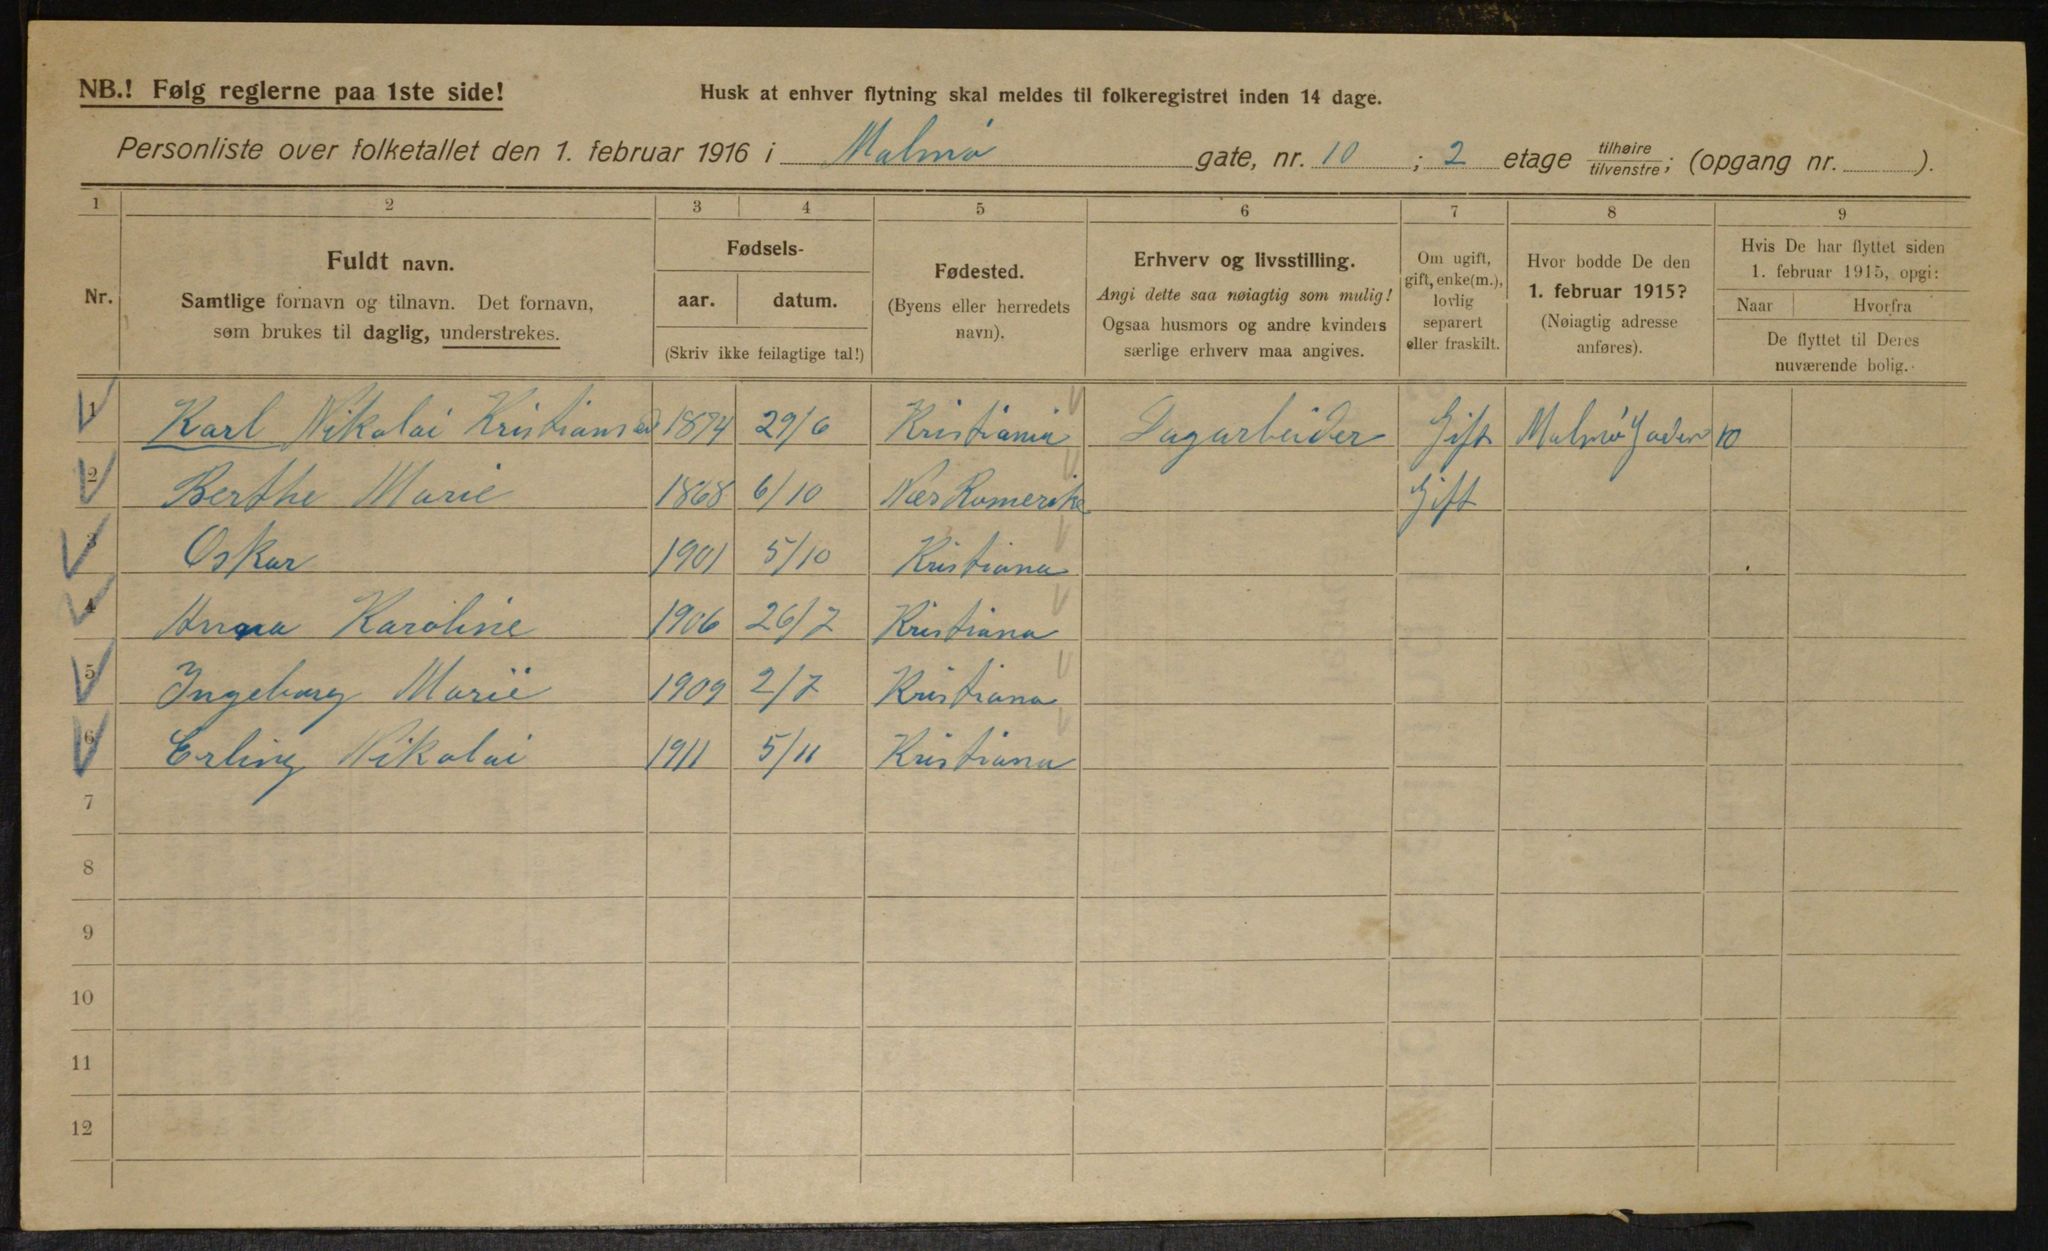 NB.! Følg reglerne paa 1ste side!
Husk at enhver flytning skal meldes til folkeregistret inden 14 dage.
Personliste over folketallet den 1. februar 1916 i Malmø gate, nr. 10 ; 2 etage tilhøire/tilvenstre; (opgang nr. ).
1 2 3 4 5 6 7 8 9
Nr.
Fuldt navn.
Samtlige fornavn og tilnavn. Det fornavn,
som brukes til daglig, understrekes.
Fødsels-
aar. datum.
(Skriv ikke feilagtige tal!)
Fødested.
(Byens eller herredets
navn).
Erhverv og livsstilling.
Angi dette saa nøiagtig som mulig!
Ogsaa husmors og andre kvinders
særlige erhverv maa angives.
Om ugift,
gift, enke(m.),
lovlig
separert
eller fraskilt.
Hvor bodde De den
1. februar 1915?
(Nøiagtig adresse
anføres).
Hvis De har flyttet siden
1. februar 1915, opgi:
Naar Hvorfra
De flyttet til Deres
nuværende bolig.
1 Karl Nikolai Kristiansen 1874 29/6 Kristiania Dagarbeider Gift Malmø Gaden 10
2 Berthe Marie 1868 6/10 Nes Romerike Gift
3 Oskar 1901 5/10 Kristiana
4 Anna Karoline 1906 26/7 Kristiana
5 Ingeborg Marie 1909 2/7 Kristiana
6 Erling Nikolai 1911 5/11 Kristiana
7
8
9
10
11
12